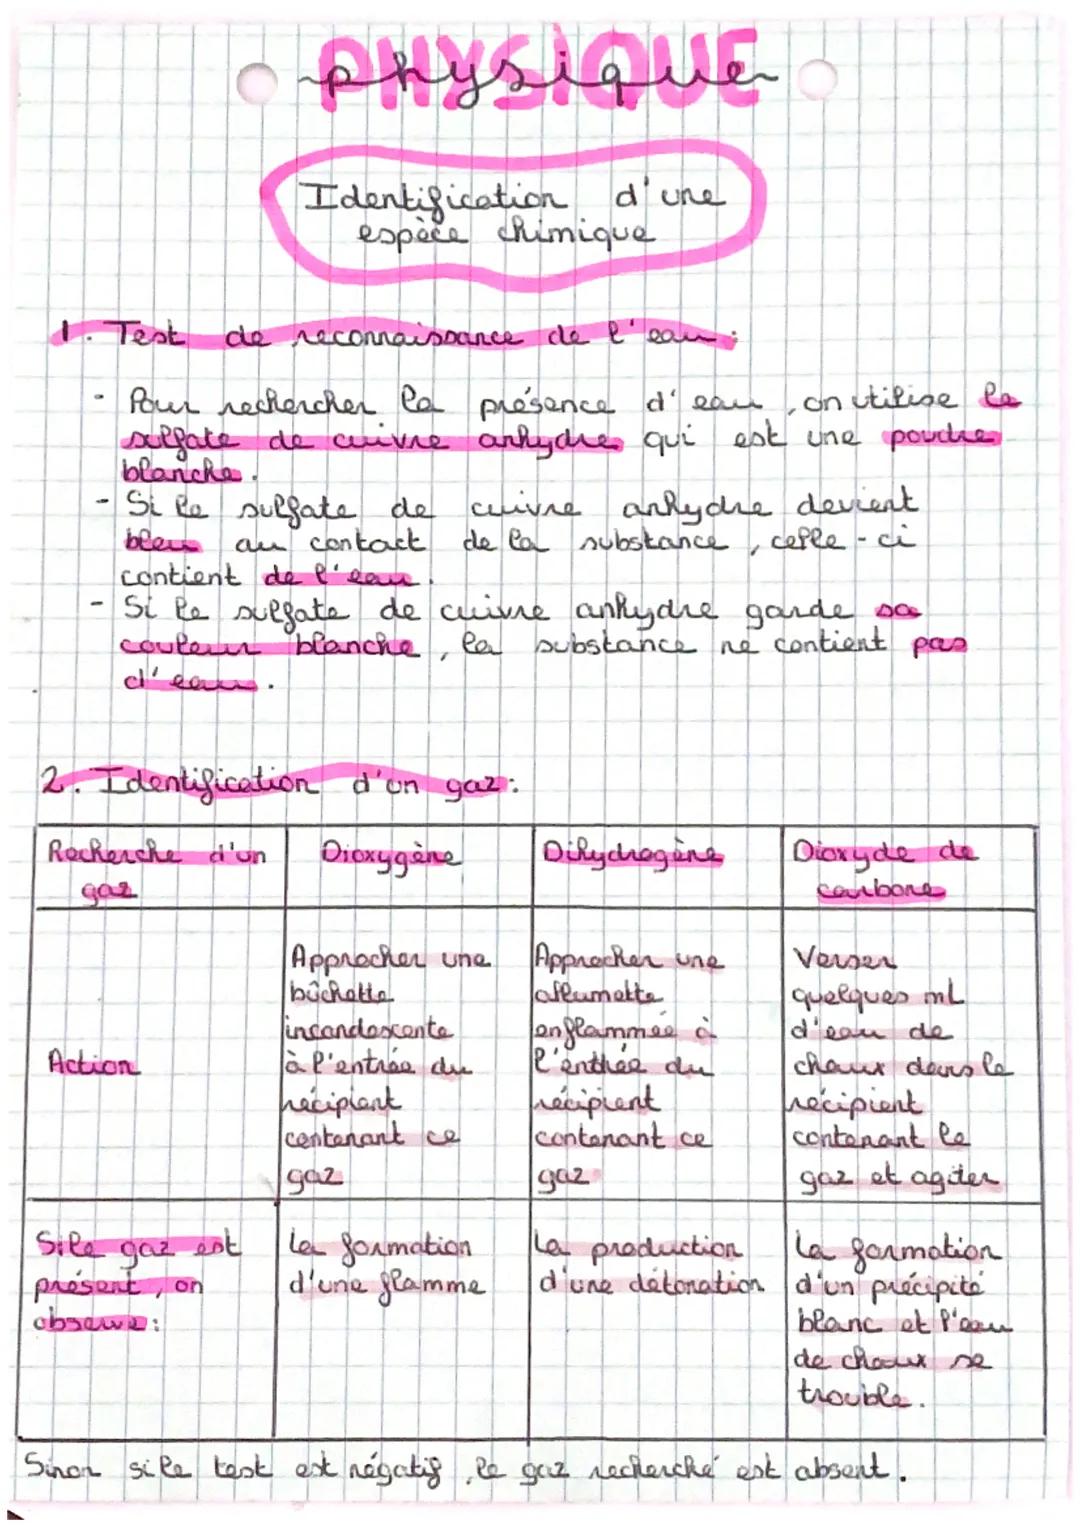 PHYSIQUE
physique
Identification d'une
espèce chimique
1. Test de reconnaissance de l'eau :
- Pour rechercher la présence d'eau, on utilise le
sulfate de cuivre anhydre qui est une poudre
blanche.
- Si le sulfate de cuivre anhydre devient
bleu au contact de la substance, celle-ci
contient de l'eau.
- Si le sulfate de cuivre anhydre garde sa
couleur blanche, la substance ne contient pas
d'eau.
2. Identification d'un gaz :
Recherche d'un
gaz
Dioxygène
Dihydrogène
Dioxyde de
carbone
Action
Approcher une
bûchette
incandescente
à l'entrée du
récipient
contenant ce
gaz
Approcher une
allumette
enflammée à
l'entrée du
récipient
contenant ce
gaz
Verser
quelques mL
d'eau de
chaux dans le
récipient
contenant le
gaz et agiter
Si le gaz est
présent, on
observe :
La formation
d'une flamme
La production
d'une détonation
La formation
d'un précipité
blanc et l'eau
de chaux se
trouble.
Sinon si le test est négatif, le gaz recherché est absent.